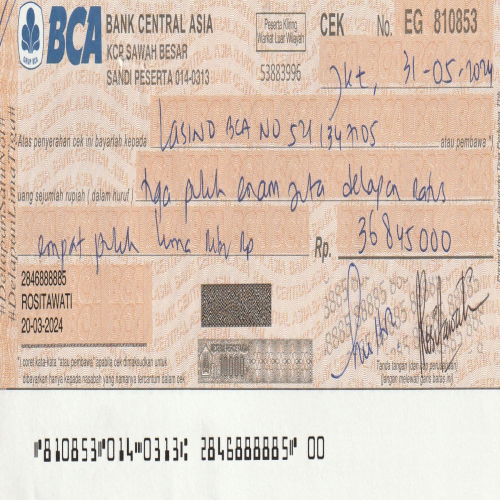 BCA BANK CENTRAL ASIA
KCP SAWAH BESAR
SANDI PESERTA 014-0313
Peserta Kliring
Warkat Luar Wilayah
53883996
CEK No. EG 810853
Jkt, 31-05-2024
Atas penyerahan cek ini bayarlah kepada LASINO BCA NO atau pembawa *)
uang sejumlah rupiah ( dalam huruf ) tiga puluh enam juta delapan ratus
empat puluh lima ribu Rp Rp. 36845000
2846888885
ROSITAWATI
20-03-2024
*) coret kata-kata "atau pembawa" apabila cek dimaksudkan untuk
dibayarkan hanya kepada nasabah yang namanya tercantum dalam cek
Tanda tangan dan cap perusahaan
(jangan melewati garis batas ini)
810853 014 0313 2846888885 00